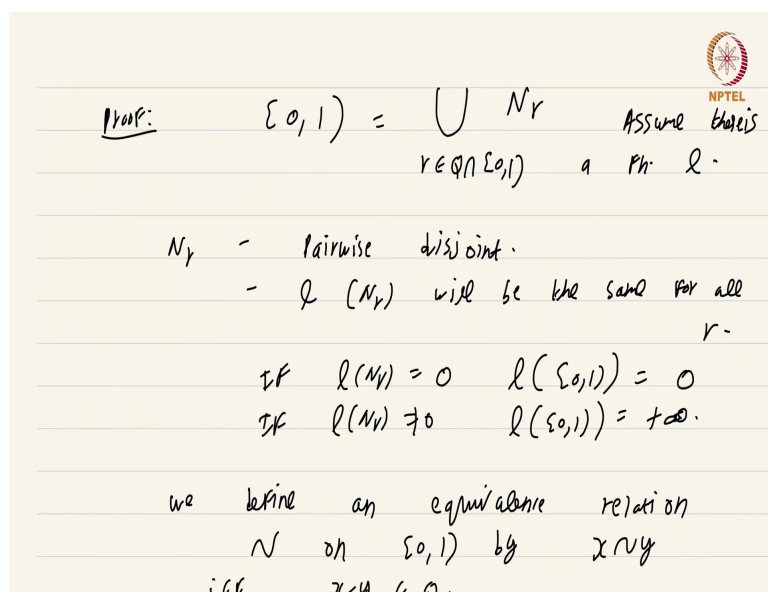 NPTEL
Proof: [0,1) = ⋃ Nr Assume there is
r ∈ Q∩[0,1) a fn. l.
Nr - Pairwise disjoint.
- l (Nr) will be the same for all
r.
If l(Nr) = 0 l([0,1)) = 0
If l(Nr) ≠ 0 l([0,1)) = +∞.
we define an equivalence relation
~ on [0,1) by x~y
iff x-y ∈ Q.